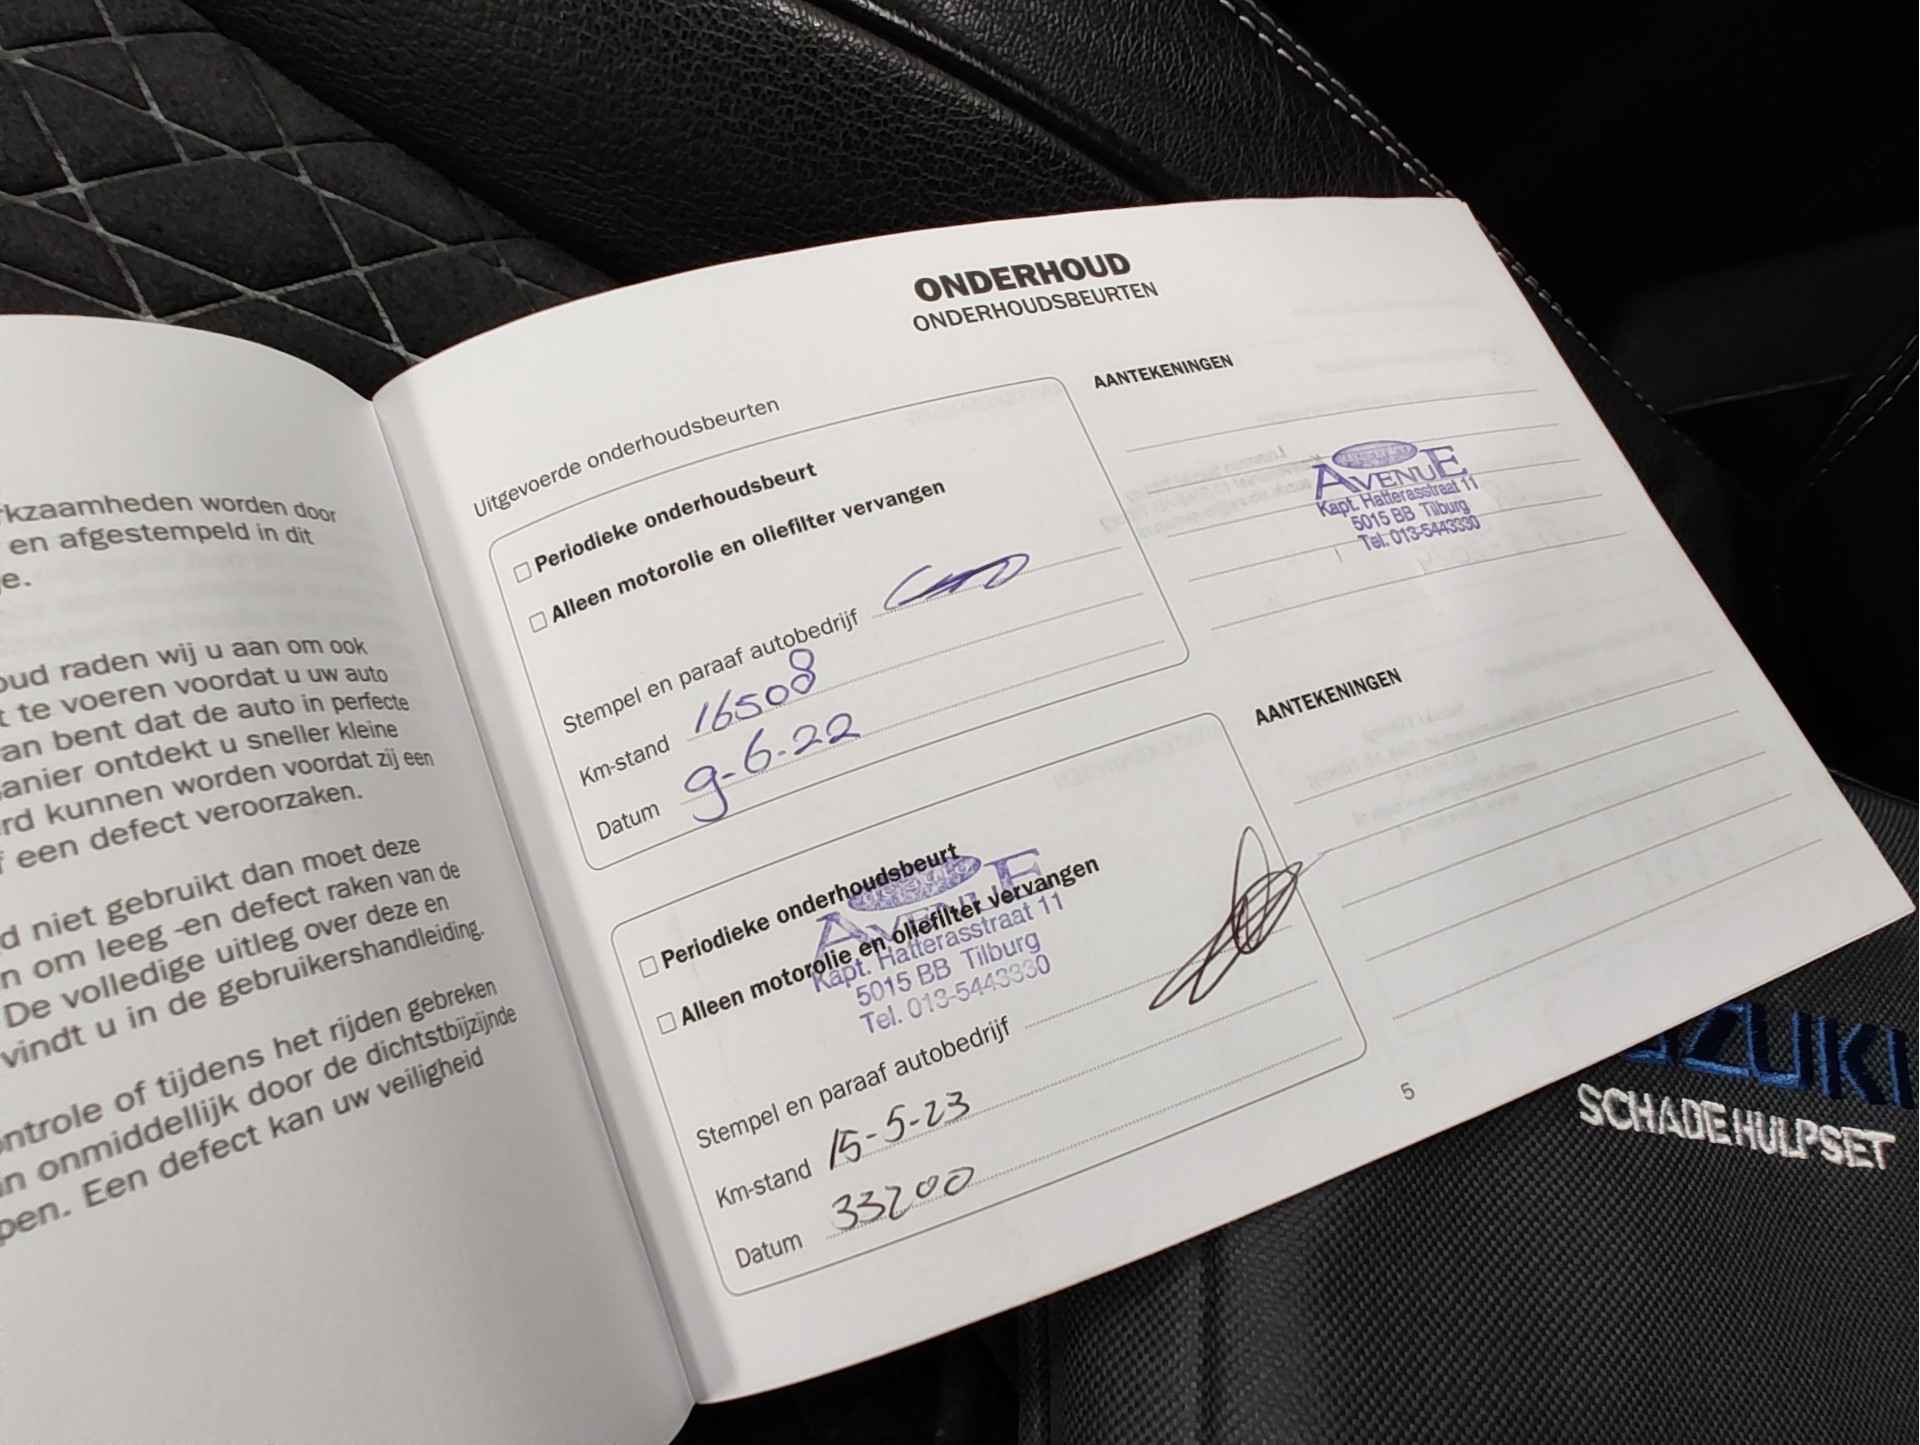 rkzaamheden worden door
en afgestempeld in dit
e.
oud raden wij u aan om ook
t te voeren voordat u uw auto
an bent dat de auto in perfecte
anier ontdekt u sneller kleine
rd kunnen worden voordat zij een
f een defect veroorzaken.
d niet gebruikt dan moet deze
n om leeg -en defect raken van de
De volledige uitleg over deze en
vindt u in de gebruikershandleiding.
ontrole of tijdens het rijden gebreken
n onmiddellijk door de dichtstbijzijnde
pen. Een defect kan uw veiligheid
ONDERHOUD
ONDERHOUDSBEURTEN
Uitgevoerde onderhoudsbeurten
Periodieke onderhoudsbeurt
Alleen motorolie en oliefilter vervangen
Stempel en paraaf autobedrijf
Km-stand 16508
Datum 9-6-22
AANTEKENINGEN
AVENUE
Kapt. Hatterasstraat 11
5015 BB Tilburg
Tel. 013-5443330
Periodieke onderhoudsbeurt
Alleen motorolie en oliefilter vervangen
AVENUE
Kapt. Hatterasstraat 11
5015 BB Tilburg
Tel. 013-5443330
Stempel en paraaf autobedrijf
Km-stand 15-5-23
Datum 33200
AANTEKENINGEN
5
SUZUKI
SCHADEHULPSET